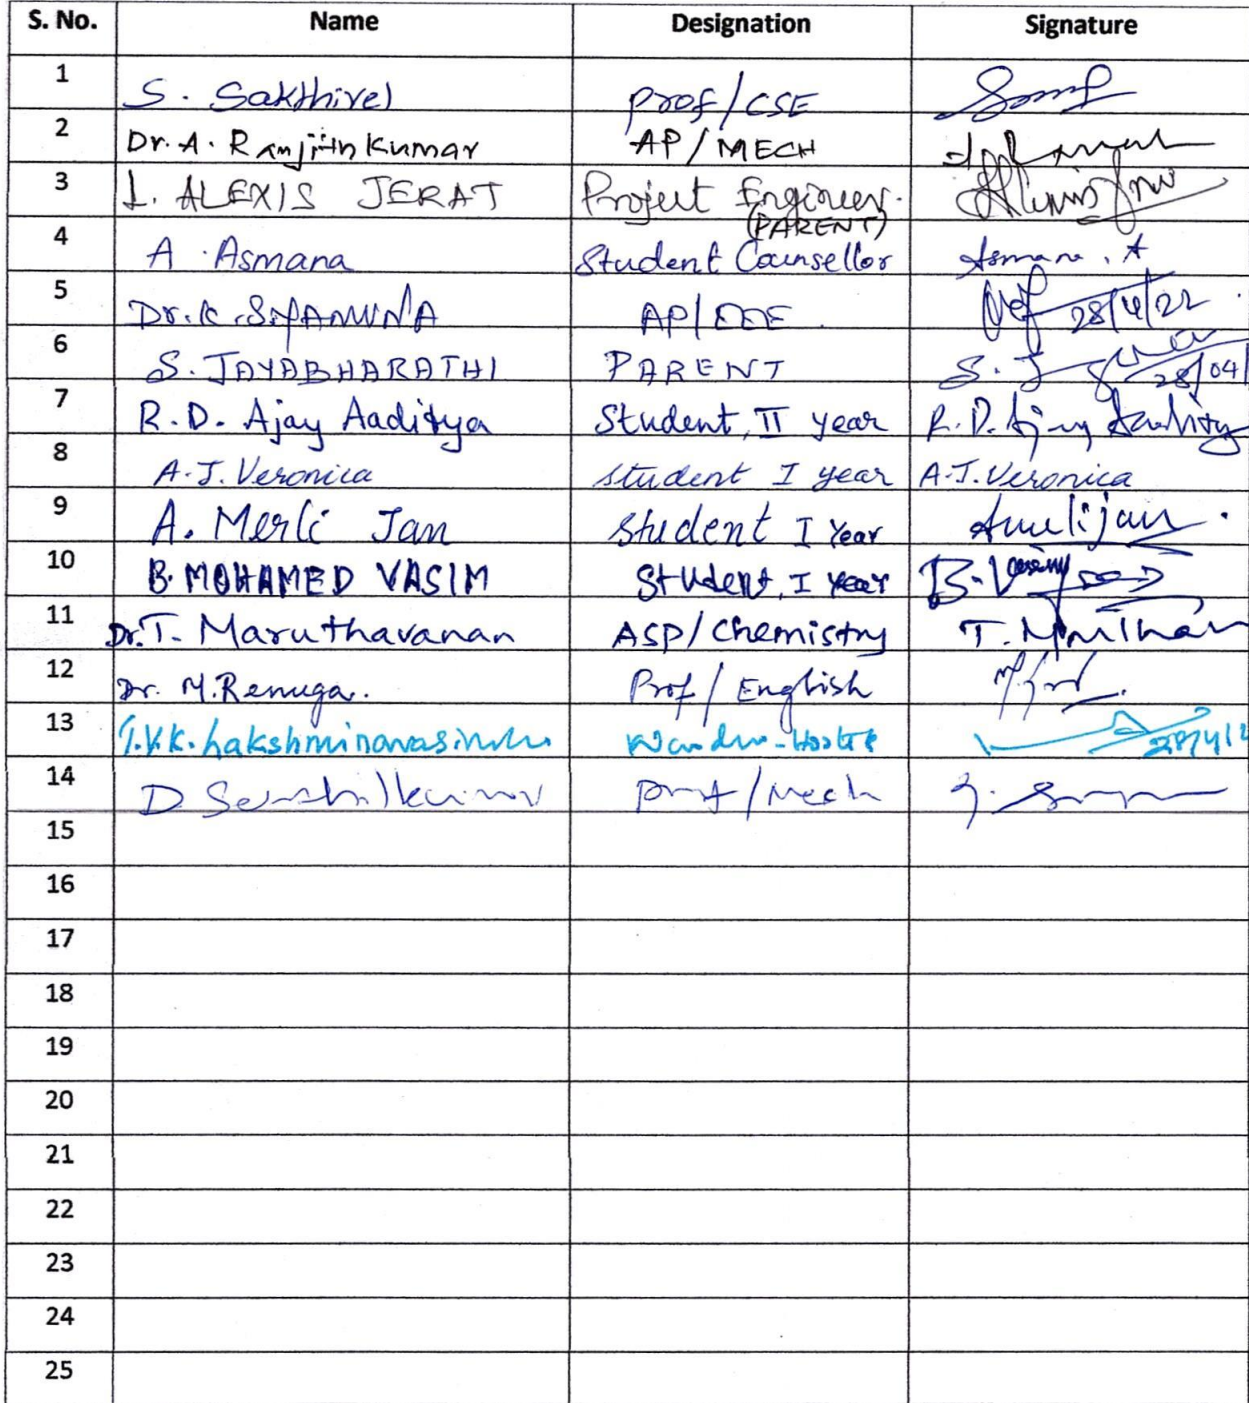 S. No. Name Designation Signature
1 S. Sakthivel Prof/CSE
2 Dr. A. Ranjithkumar AP/MECH
3 L. ALEXIS JERAT Project Engineer.
(PARENT)
4 A. Asmana Student Counsellor Asmana. A
5 Dr. K. AP/EEE 28/4/22
6 S. JAYABHARATHI PARENT S. J 28/04/
7 R.D. Ajay Aaditya Student, II year R.D. Ajay Aaditya
8 A.J. Veronica student I year A.J. Veronica
9 A. Merli Jan Student I Year
10 B. MOHAMED VASIM Student, I year
11 Dr. T. Maruthavanan ASP/Chemistry
12 Dr. M. Renuga. Prof/English
13 28/4/2
14 D Senthilkumar Prof/Mech
15
16
17
18
19
20
21
22
23
24
25